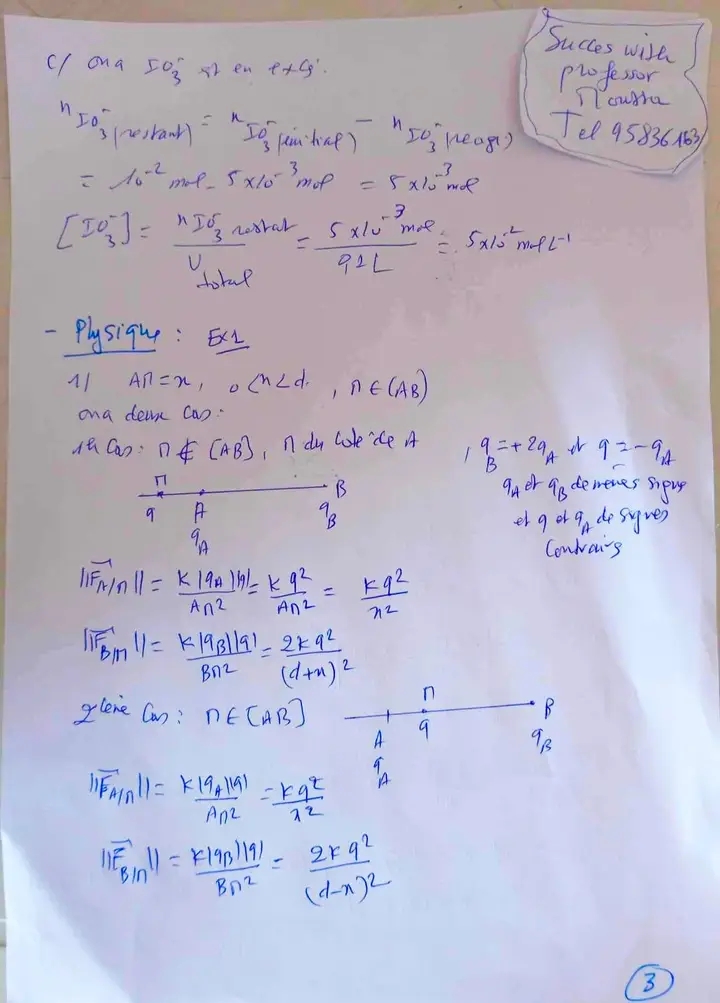 Succes with
professor
Moussa
Tel 95836163
c/ on a IO₃⁻ est en excès.
n IO₃⁻ (restant) = n IO₃⁻ (initial) - n IO₃⁻ (réagi)
= 10⁻² mol - 5x10⁻³ mol = 5x10⁻³ mol
[IO₃⁻] = n IO₃⁻ restant / V total = 5x10⁻³ mol / 0,1 L = 5x10⁻² mol L⁻¹
- Physique : Ex1
1/ AM = x, 0<x<d, M ∈ (AB)
on a deux cas :
1er cas : M ∉ [AB], M du coté de A
, q_B = +2q_A et q = -q_A
q_A et q_B de mêmes signe
et q et q_A de signes
contraires
M B
q A q_B
q_A
||F⃗_A/M|| = K|q_A||q| / AM² = Kq² / AM² = Kq² / x²
||F⃗_B/M|| = K|q_B||q| / BM² = 2Kq² / (d+x)²
2ième Cas : M ∈ [AB]
M B
A q q_B
q_A
||F⃗_A/M|| = K|q_A||q| / AM² = Kq² / x²
||F⃗_B/M|| = K|q_B||q| / BM² = 2Kq² / (d-x)²
3